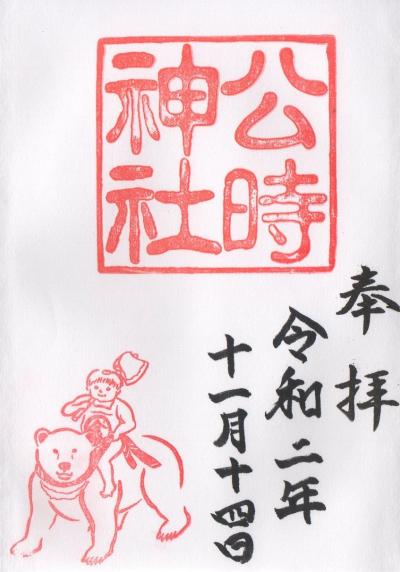 公時
神社
奉拝
令和二年
十一月十四日